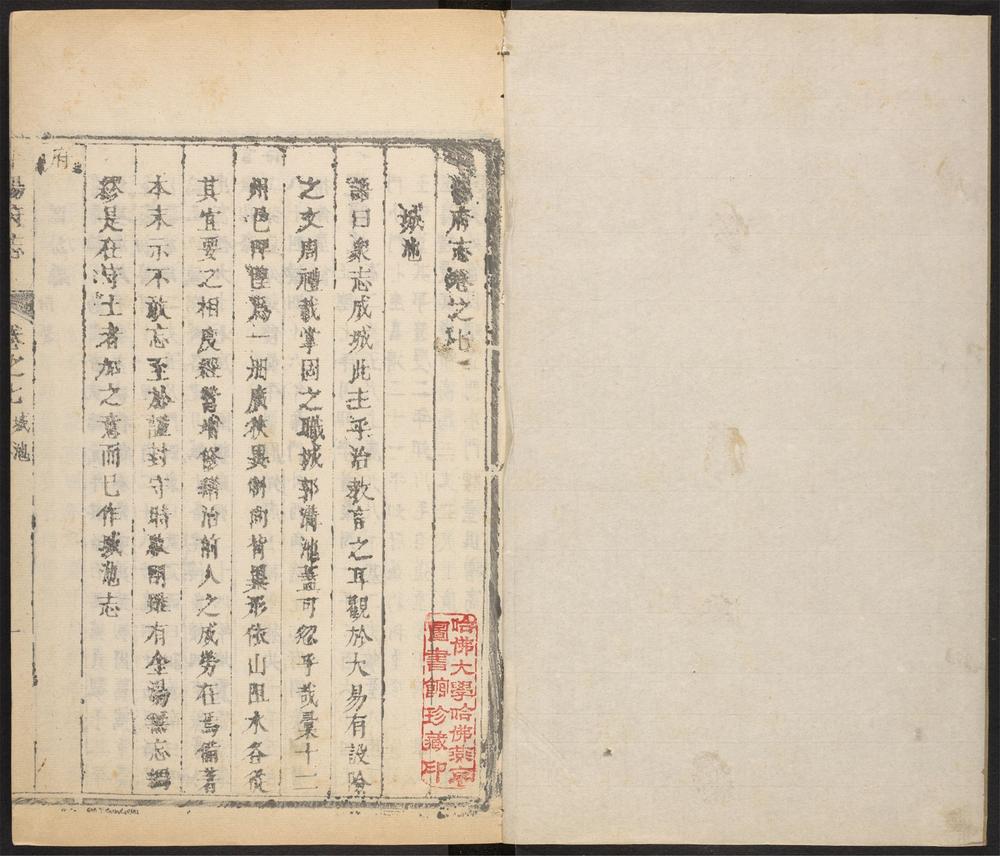 府志卷之七
城池
語曰衆志成城此主乎治教言之耳觀於大易有設險
之文周禮載掌固之職城郭溝池蓋可忽乎哉臬十一
州邑畢壁爲一册廣狹異制向背異形依山阻水各從
其宜要之相度經營增修繕治前人之成勞在焉備著
本末示不敢忘至於謹封守時啟閉雖有金湯無志
繆是在守土者加之意而已作城池志
府
陽府志
卷之七 城池
一
哈佛大學哈佛燕京
圖書館珍藏印